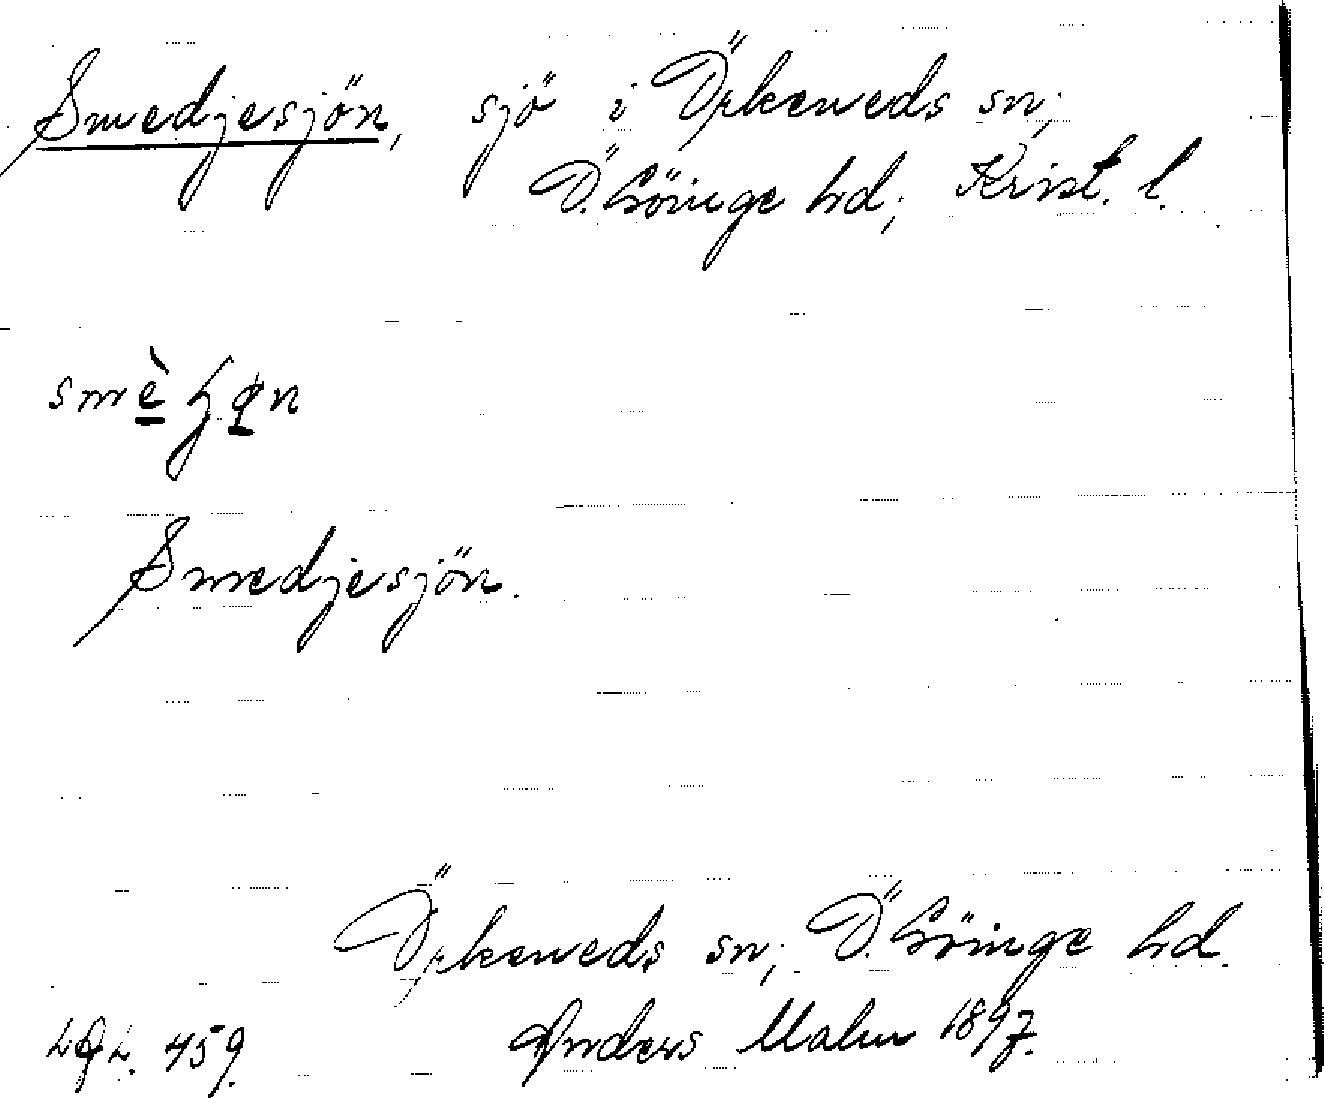 Smedjesjön, sjö i Örkeneds sn;
Ö. Göinge hd; Krist. l.
Smedjesjön.
Örkeneds sn; Ö. Göinge hd.
459. Anders Malm 1897.